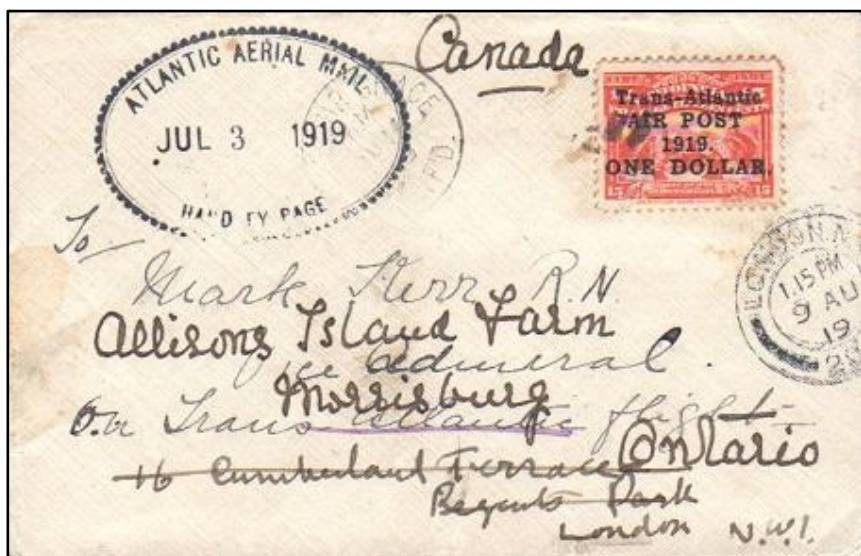 Canada
ATLANTIC AERIAL MAIL
JUL 3 1919
HAND EY PAGE
Trans-Atlantic
AIR POST
1919.
ONE DOLLAR.
15 15
LONDON
1.15 PM
9 AU
19
To
Mark Kerr R.N.
Allisons Island Farm
admiral.
Morrisburg
On Trans Atlantic flight
Ontario
16 Cumberland Terrace
Regents Park
London N.W.1.